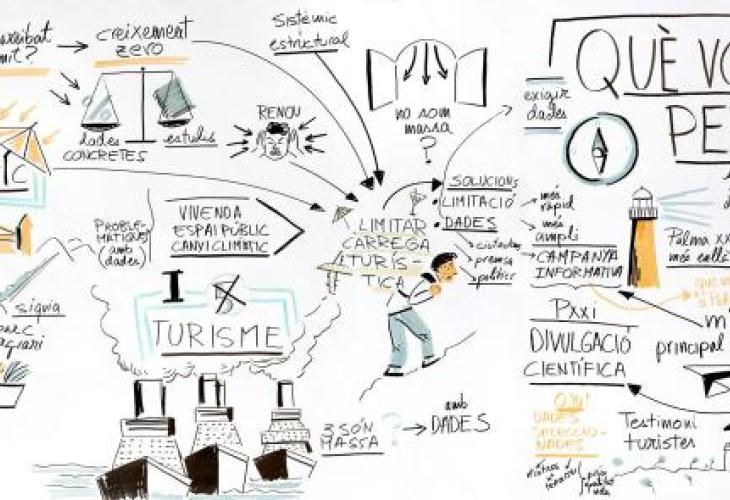 creixement
zero
dades
CONCRETES
estudis
Sistèmic
estructural
RENOU
no som
massa
?
exigir
dades
QUÈ VO
PE
PROBLE-
MÀTIQUES
amb
dades)
VIVENDA
ESPAI PÚBLIC
CANVI CLIMÀTIC
LIMITAR
CÀRREGA
TURÍS-
TICA
SOLUCIONS
LIMITACIÓ
DADES
més
ràpid
més
ampli
ciutadans
premsa
polítics
CAMPANYA
INFORMATIVA
Palma XX
més
siquia
TURISME
3 SÓN
MASSA
?
amb
DADES
Pxxi
DIVULGACIÓ
CIENTÍFICA
principal
QUI!
DADES
SELECCIO-
NADES
Testimoni
turistes